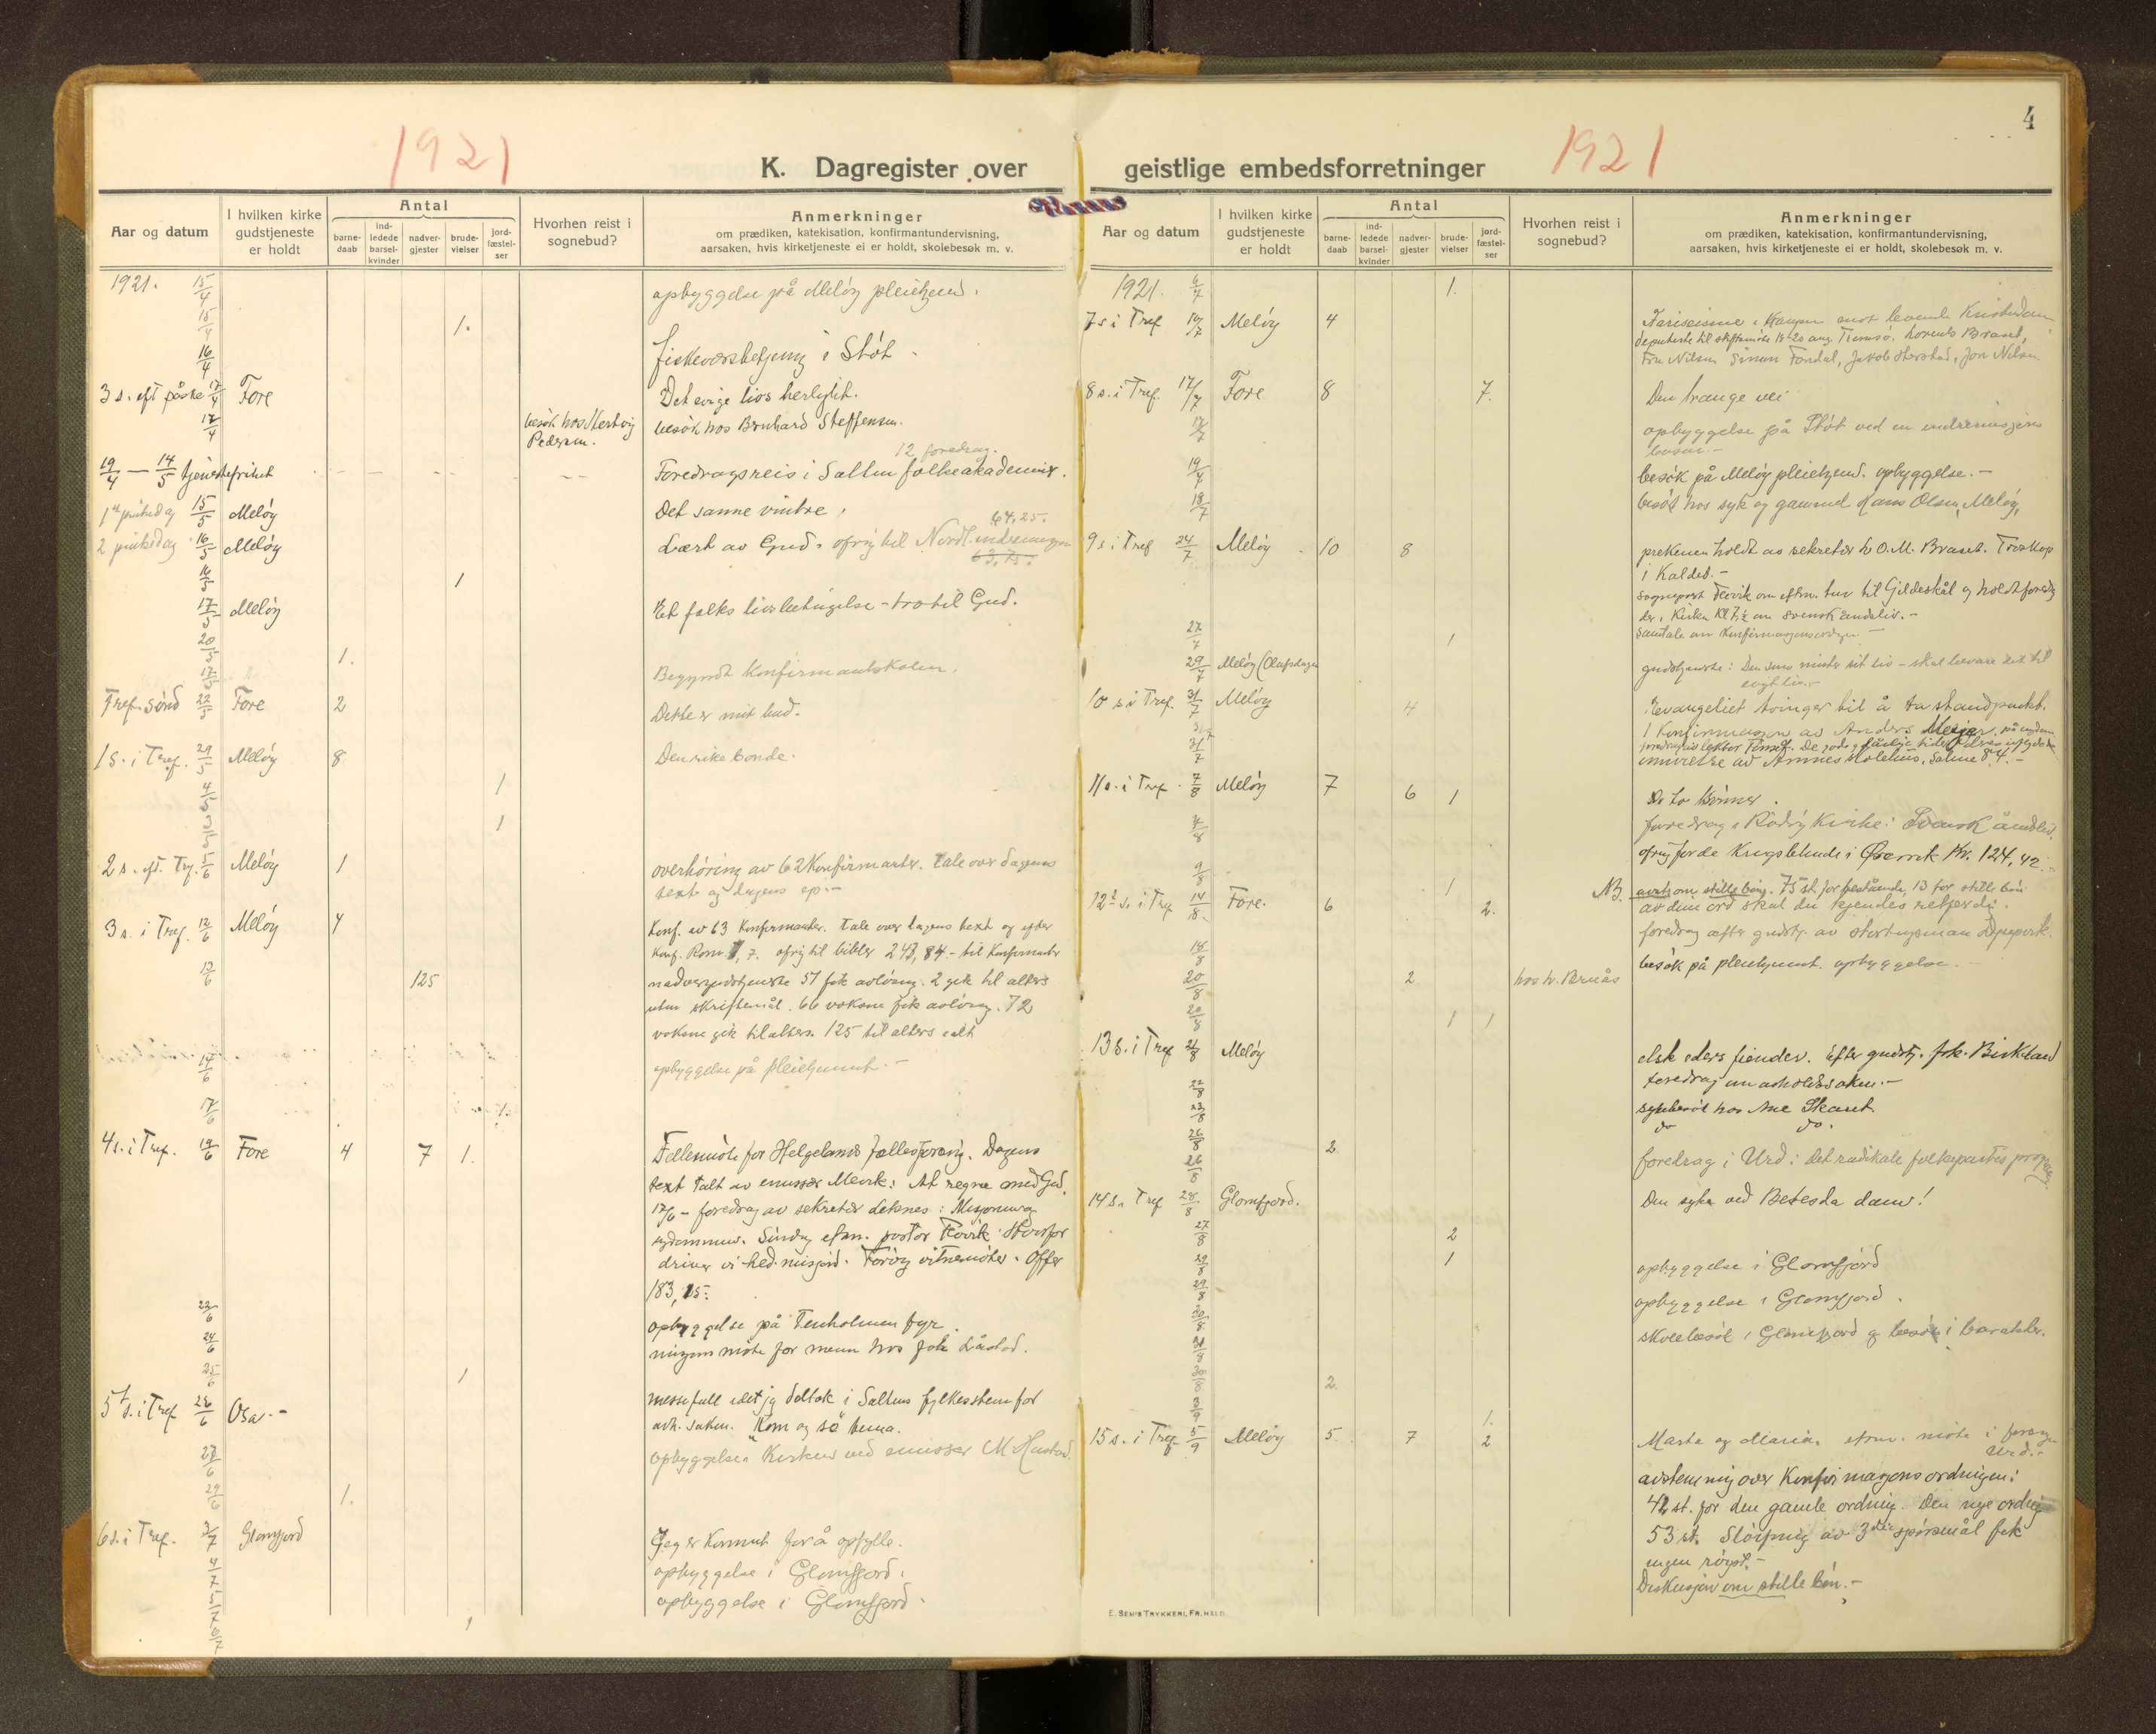 4
1921
1921
K. Dagregister over geistlige embedsforretninger
Aar og datum
I hvilken kirke gudstjeneste er holdt
Antal
barne-daab
ind-ledede barsel-kvinder
nadver-gjester
brude-vielser
jord-fæstel-ser
Hvorhen reist i sognebud?
Anmerkninger
om prædiken, katekisation, konfirmantundervisning,
aarsaken, hvis kirketjeneste ei er holdt, skolebesøk m. v.
1921. 15/4 opbyggelse på Meløy pleiehjem.
15/4 1.
16/4 i Støt
3 s. eft påske 17/4 Fore Det evige livs herlighet.
17/4 besøk hos Hertvig Pedersen. besøk hos Bernhard Steffensen.
12 foredrag.
19/4 — 14/5 tjenestefrihet Foredragsreis i Salten folkeakademier.
15/5 Meløy Det sanne vintre.
64,25.
2 pinsedag 16/5 Meløy Lært av Gud. ofring til Nordl.
63,75.
16/5 1
17/5 Meløy Et folks livsbetingelse - tro til Gud.
20/5 1.
17/5 Begyndt Konfirmantskolen.
Tref. sønd 22/5 Fore 2 Dette er mit bud.
1 s. i Tref. 29/5 Meløy 8 Den rike bonde.
1
1
2 s. ef. Tref. 5/6 Meløy 1 overhøring av 62 Konfirmanter. Tale over dagens
text og dagens ep.-
3 s. i Tref. 12/6 Meløy 4 Konf. av 63 Konfirmanter. Tale over dagens text og efter
Konf. Rom , 7. ofring til bibler 243,84.- til Konfirmanter
13/6 125 nadvergudstjeneste 57 fik avløsning. 2 gik til alters
uten skriftemål. 66 voksne fik avløsning. 72
voksne gik til alters. 125 til alters ialt
14/6 opbyggelse på pleiehjemmet.-
17/6 1.
4 s. i Tref. 19/6 Fore 4 7 1. Fellesmøte for Helgelands fællesforening. Dagens
text talt av emissær Meirk: At regne med Gud.
17/6 - foredrag av sekretær
Søndag efm. pastor Hovik:
driver vi hed. misjon. Forøvrig vitnemøter. Offer
183,15.-
23/6 opbyggelse på Tenholmen fyr.
24/6 misjons møte for menn hos
25/6 1
5 s. i Tref 26/6 Osa.- messefall idet jeg deltok i Saltens fylkesstevne for
avh. saken. "Kom og se" tema.
27/6 opbyggelse i Kirken ved emissær M. Hustad.
29/6 1.
6 s. i Tref. 3/7 Glomfjord Jeg er kommet for å opfylle.
4/7 opbyggelse i Glomfjord.
5/7 opbyggelse i Glomfjord.
6/7 1
Aar og datum
I hvilken kirke gudstjeneste er holdt
Antal
barne-daab
ind-ledede barsel-kvinder
nadver-gjester
brude-vielser
jord-fæstel-ser
Hvorhen reist i sognebud?
Anmerkninger
om prædiken, katekisation, konfirmantundervisning,
aarsaken, hvis kirketjeneste ei er holdt, skolebesøk m. v.
1921. 6/7 1.
7 s i Tref 10/7 Meløy 4 Fariseisme i Kampen mot levende Kristendom
deputerte til skiftsmøte 18-20 aug. Tromsø.
Fru Nilsen Simon Fondal, Jakob Herstad, Jon Nilsen.
8 s. i Tref. 17/7 Fore 8 7. Den trange vei
17/7 opbyggelse på Støt ved en
19/7 besøk på Meløy pleiehjem. opbyggelse.-
18/7 besøk hos syk og gammel Hans Olsen, Meløy.
9 s i Tref 24/7 Meløy 10 8 prekenen holdt av sekretær h. O. M. Braset. Troskap
i Kaldet.-
sogneprest Hovik om eftm. tur til Gildeskål og holdt foredrag
der i Kirken Kl 7½ om svensk åndsliv.-
27/7 1 samtale om Konfirmasjonsordningen -
29/7 Meløy (Olafsdagen gudstjeneste: Den som mister sit liv - skal bevare det til
evigt liv.-
10 s i Tref. 31/7 Meløy 4 Evangeliet tvinger til å ta standpunkt.
31/7
innvielse av Amnes skolehus, Salme 84.-
11 s. i Tref. 7/8 Meløy 7 6 1 De to sønner.
7/8 foredrag i Rødøy Kirke: Svensk åndsliv.
9/8 ofring for de Krigslidende i Østerrik Kr. 124,42.-
1 NB. om stille bøn. 75 st. for bestående, 13 for stille bøn
12 s. i Tref 14/8. Fore. 6 2. av dine ord skal du kjendes retferdig.
foredrag efter gudstj. av stortingsman
18/8 besøk på pleiehjemmet. opbyggelse. -
20/8 2 hos h. Bruås
20/8 1 1
13 s. i Tref 21/8 Meløy elsk eders fiender. efter gudstj. frk. Birkeland
foredrag om avholdssaken.-
22/8 sykebesøk hos Ane Skaret.
23/8 do do.
26/8 2
26/8 foredrag i Urd: Det radikale folkepartis program
14 s. Tref 28/8 Glomfjord. Den syke ved Betesda dam!
27/8 2
29/8 1 opbyggelse i Glomfjord
29/8 opbyggelse i Glomfjord.
30/8 skolebesøk i Glomfjord og besøk i barakker.
31/8
30/8 2.
3/9 1.
15 s. i Tref 5/9 Meløy 5. 7 2 Marta og Maria. eftm. møte i
Urd.-
avstemning over Konfirmasjonsordningen:
42 st. for den gamle ordning. Den nye ordning
53 st. Sløifning av 3die spørsmål fik
ingen røyst.-
Diskusjon om stille bøn.-
E. SEM'S TRYKKERI, FR.HALD